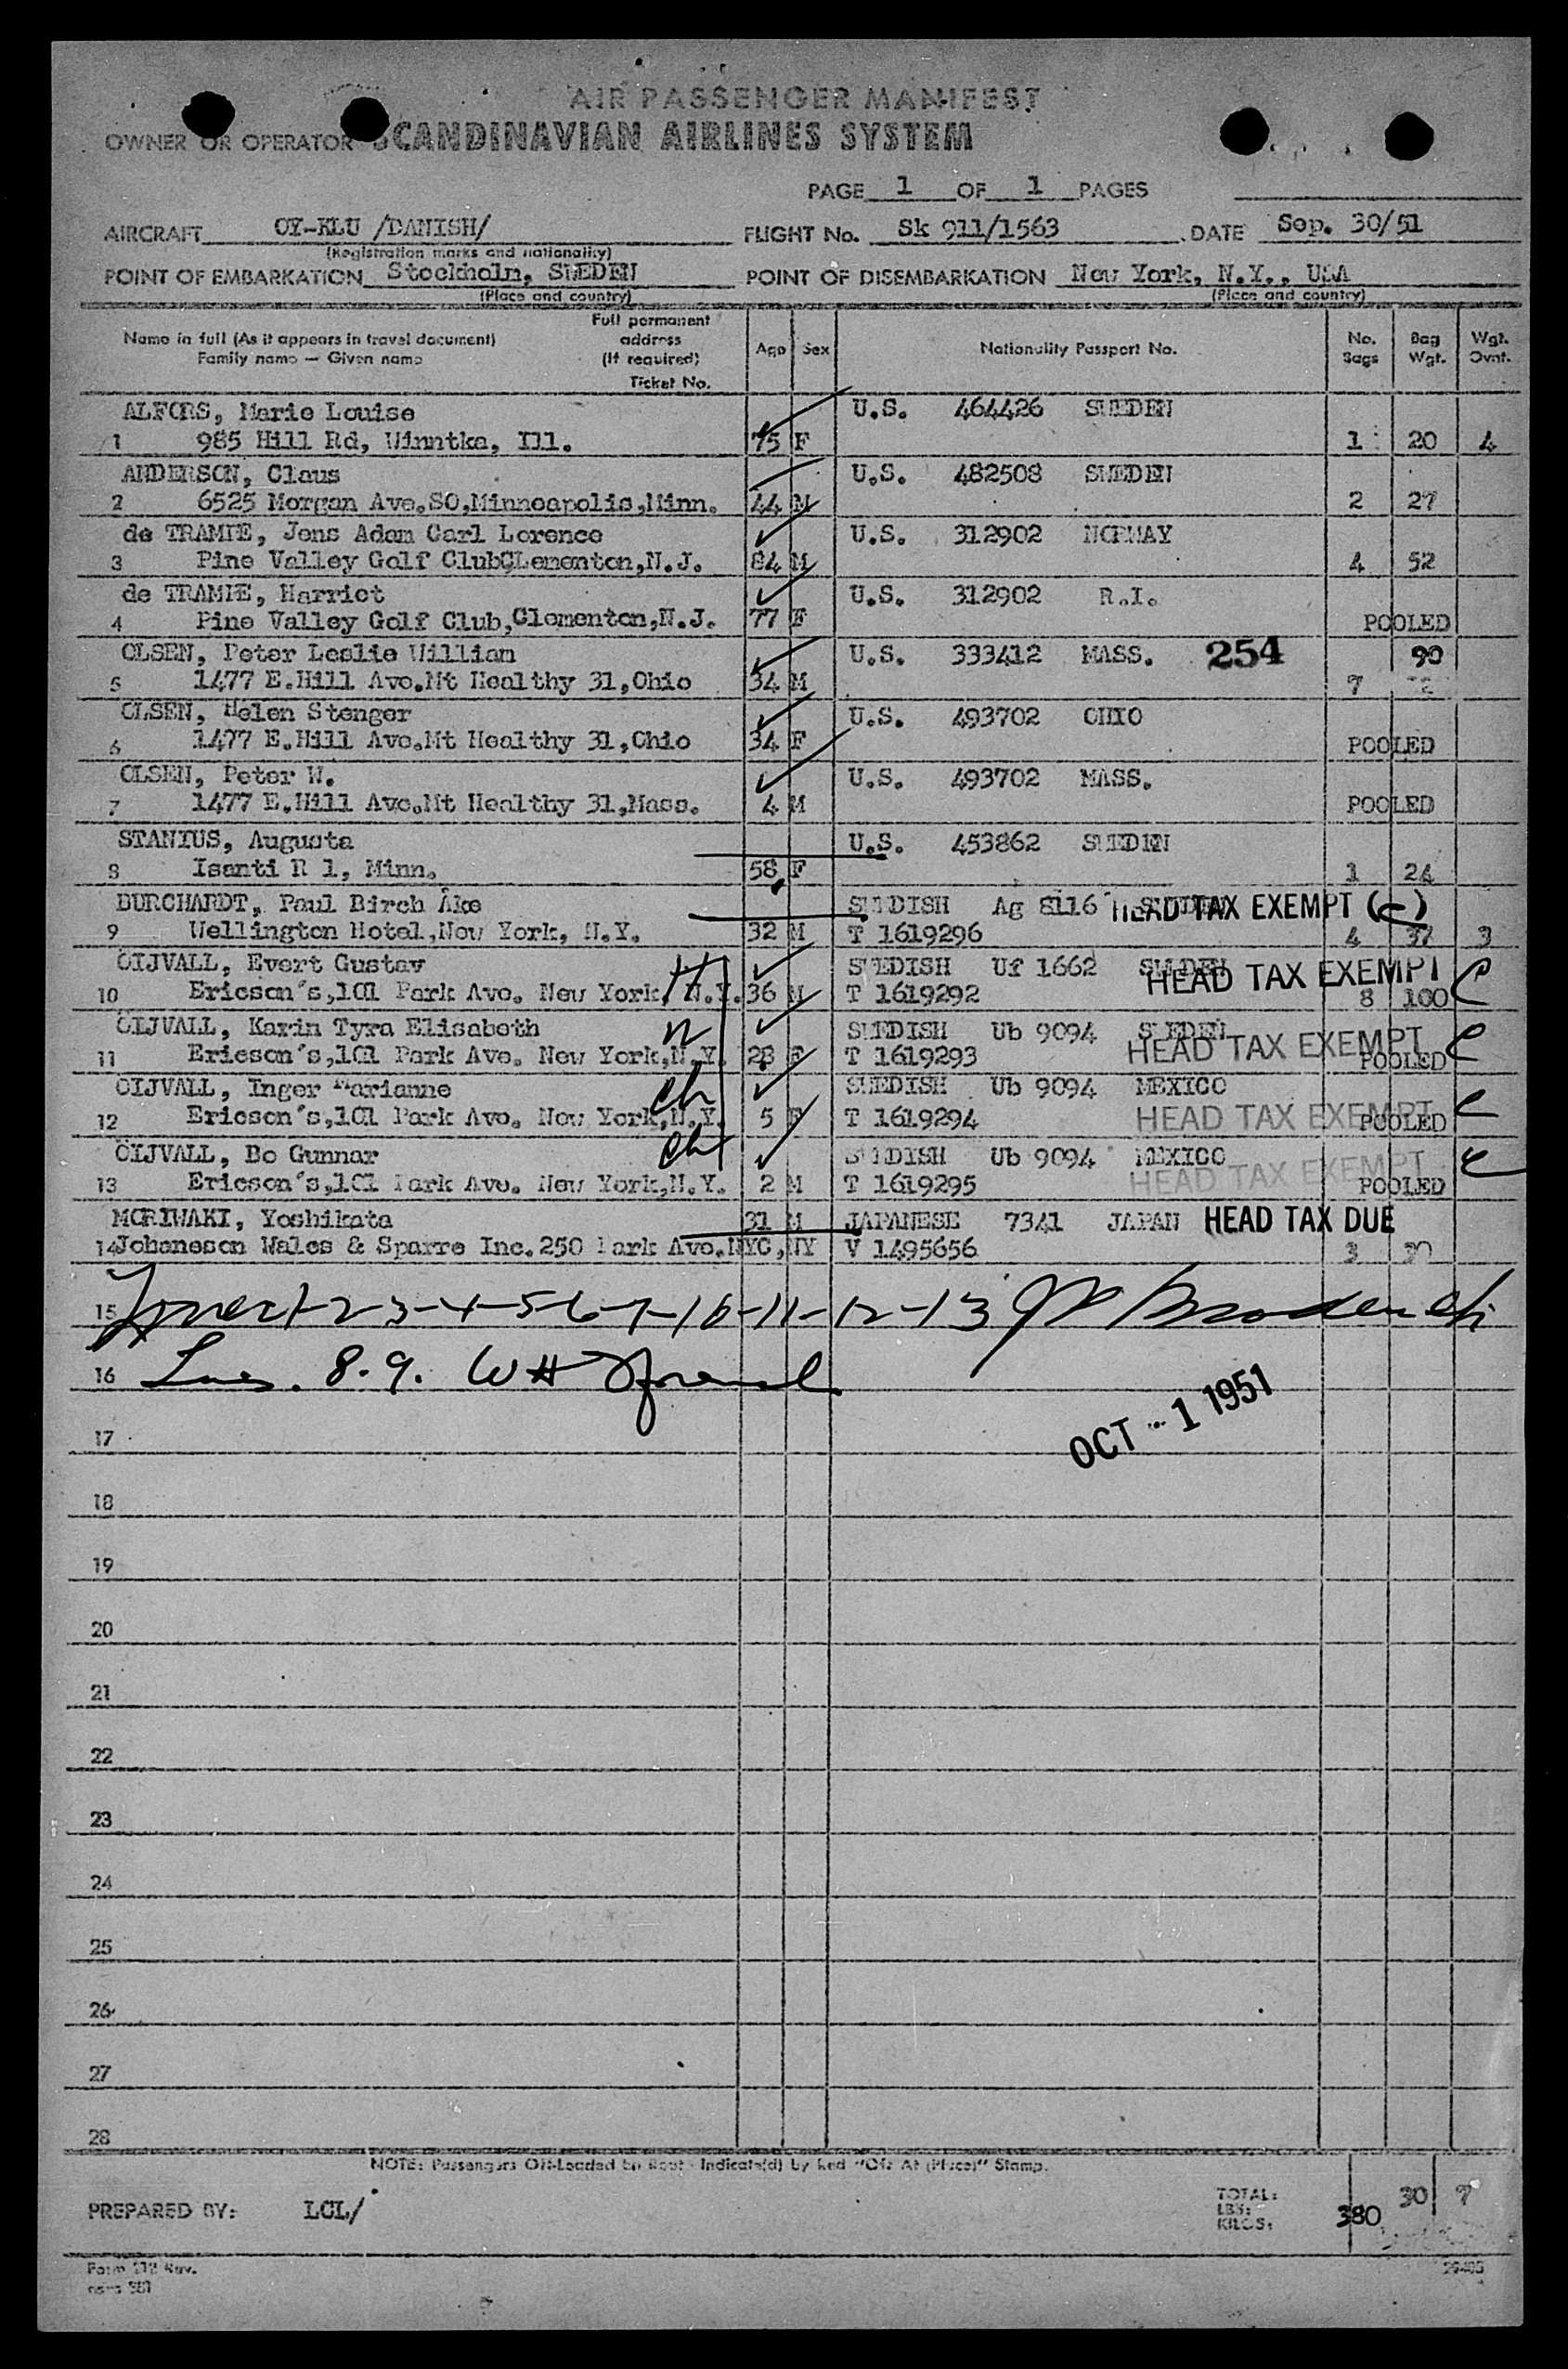 AIR PASSENGER MANIFEST
OWNER OR OPERATOR SCANDINAVIAN AIRLINES SYSTEM
PAGE 1 OF 1 PAGES
AIRCRAFT OY-KLU /DANISH/ FLIGHT No. Sk 911/1563 DATE Sep. 30/51
(Registration marks and nationality)
POINT OF EMBARKATION Stockholm, SWEDEN POINT OF DISEMBARKATION New York, N.Y., USA
(Place and country) (Place and country)
Name in full (As it appears in travel document) Full permanent address (If required) Age Sex Nationality Passport No. No. Bags Bag Wgt. Wgt. Ovnt.
Family name — Given name Ticket No.
ALFORS, Marie Louise U.S. 464426 SWEDEN
1 985 Hill Rd, Winntka, Ill. 75 F 1 20 4
ANDERSON, Claus U.S. 482508 SWEDEN
2 6525 Morgan Ave.SO,Minneapolis,Minn. 44 M 2 27
de TRAMIE, Jens Adam Carl Lorence U.S. 312902 NORWAY
3 Pine Valley Golf ClubCLementon,N.J. 84 M 4 52
de TRAMIE, Harriet U.S. 312902 R.I.
4 Pine Valley Golf Club,Clementon,N.J. 77 F POOLED
OLSEN, Peter Leslie William U.S. 333412 MASS. 254 90
5 1477 E.Hill Ave.Mt Healthy 31,Ohio 34 M 7
OLSEN, Helen Stenger U.S. 493702 OHIO
6 1477 E.Hill Ave.Mt Healthy 31,Ohio 34 F POOLED
OLSEN, Peter W. U.S. 493702 MASS.
7 1477 E.Hill Ave.Mt Healthy 31,Mass. 4 M POOLED
STANIUS, Augusta U.S. 453862 SWEDEN
8 Isanti R 1, Minn. 58 F 1 24
BURCHARDT, Paul Birch Åke SWEDISH Ag 8116 SWEDEN HEAD TAX EXEMPT (c)
9 Wellington Hotel,New York, N.Y. 32 M T 1619296 4 37 3
ÖIJVALL, Evert Gustav H SWEDISH Uf 1662 SWEDEN HEAD TAX EXEMPT C
10 Ericson's,101 Park Ave. New York, N.Y. 36 M T 1619292 8 100
ÖIJVALL, Karin Tyra Elisabeth W SWEDISH Ub 9094 SWEDEN HEAD TAX EXEMPT C
11 Ericson's,101 Park Ave. New York,N.Y. 28 F T 1619293 POOLED
ÖIJVALL, Inger Marianne ch SWEDISH Ub 9094 MEXICO
12 Ericson's,101 Park Ave. New York,N.Y. 5 F T 1619294 HEAD TAX EXEMPT POOLED C
ÖIJVALL, Bo Gunnar ch SWEDISH Ub 9094 MEXICO HEAD TAX EXEMPT C
13 Ericson's,101 Park Ave. New York,N.Y. 2 M T 1619295 POOLED
MORIWAKI, Yoshikata 31 M JAPANESE 7341 JAPAN HEAD TAX DUE
14 Johaneson Wales & Sparre Inc.250 Park Ave.NYC,NY V 1495656 3 30
15 1-2-3-4-5-6-7-10-11-12-13
16 8.9. WH
OCT -1 1951
17
18
19
20
21
22
23
24
25
26
27
28
NOTE: Passengers Off-Loaded En Route Indicate(d) by Red "Off At (Place)" Stamp.
PREPARED BY: LCL/ TOTAL: LBS: KILOS: 380 30 7
Form 212 Rev.